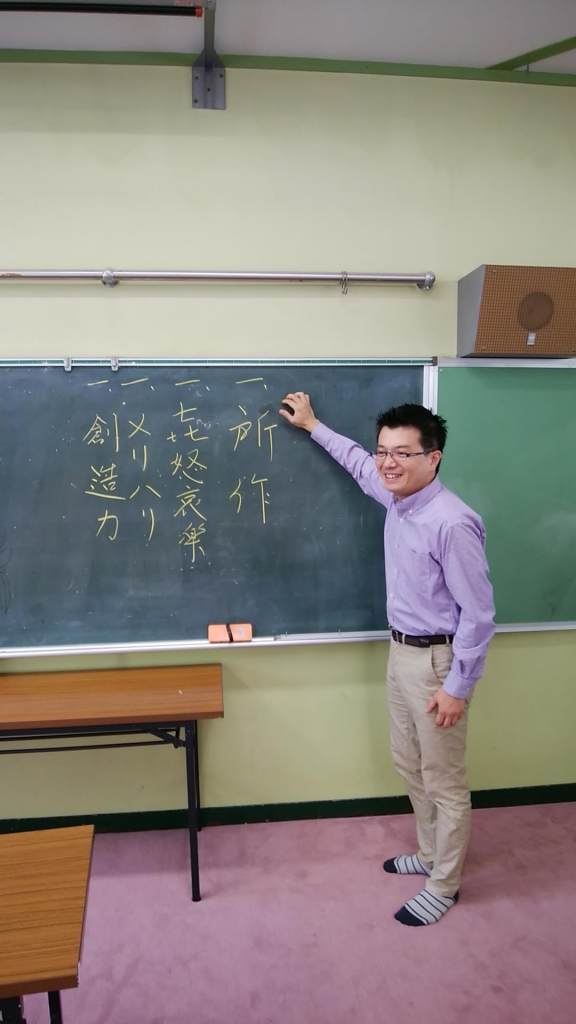 一、所作
一、㐂怒哀楽
一、メリハリ
一、創造力